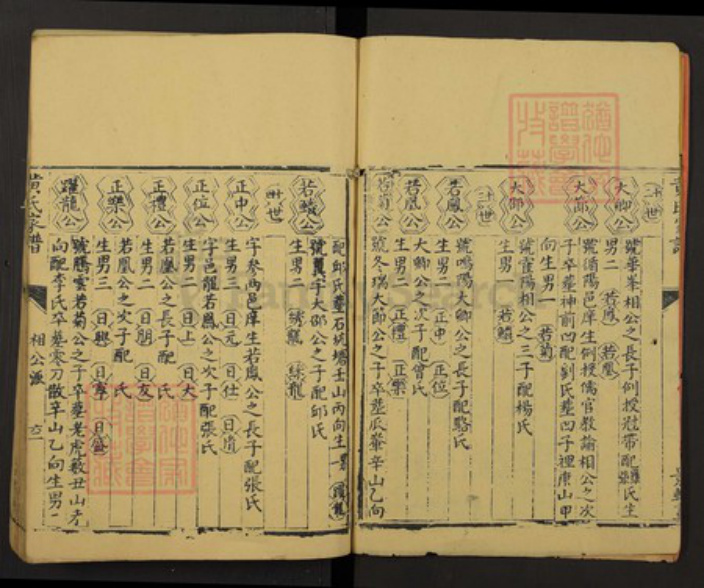 二十世
大卿公
號華峯相公之長子例授冠帶配氏生
男二 若鳳 若凰
大節公
號循陽邑庠生例授儒官教諭相公之次
子卒塟神前凹配劉氏塟凹子裡庚山甲
向生男一 若菊
大卲公
號震陽相公之三子配楊氏
生男 若鱗
世
若鳳公
號鳴陽大卿公之長子配駱氏
生男二 正中 正位
若凰公
大卿公之次子配曾氏
生男二 正禮 正樂
若菊公
號冬瑞大節公之子卒塟瓜輋辛山乙向
配邱氏塟石坑塘壬山丙向生一男 躍龍
若鱗公
號翼宇大卲公之子配邱氏
生男二 綉龍
世
正中公
字參兩邑庠生若鳳公之長子配張氏
生男三 日元 日仕
正位公
字邑龍若鳳公之次子配張氏
生男二 日上 日大
正禮公
若凰公之長子配 氏
生男二 日朋 日友
正樂公
若凰公之次子配 氏
生男三 日興 日盛
躍龍公
號騰雲若菊公之子卒塟老虎丑山
向配李氏卒塟辛山乙向生男一
黄氏家譜
相公派